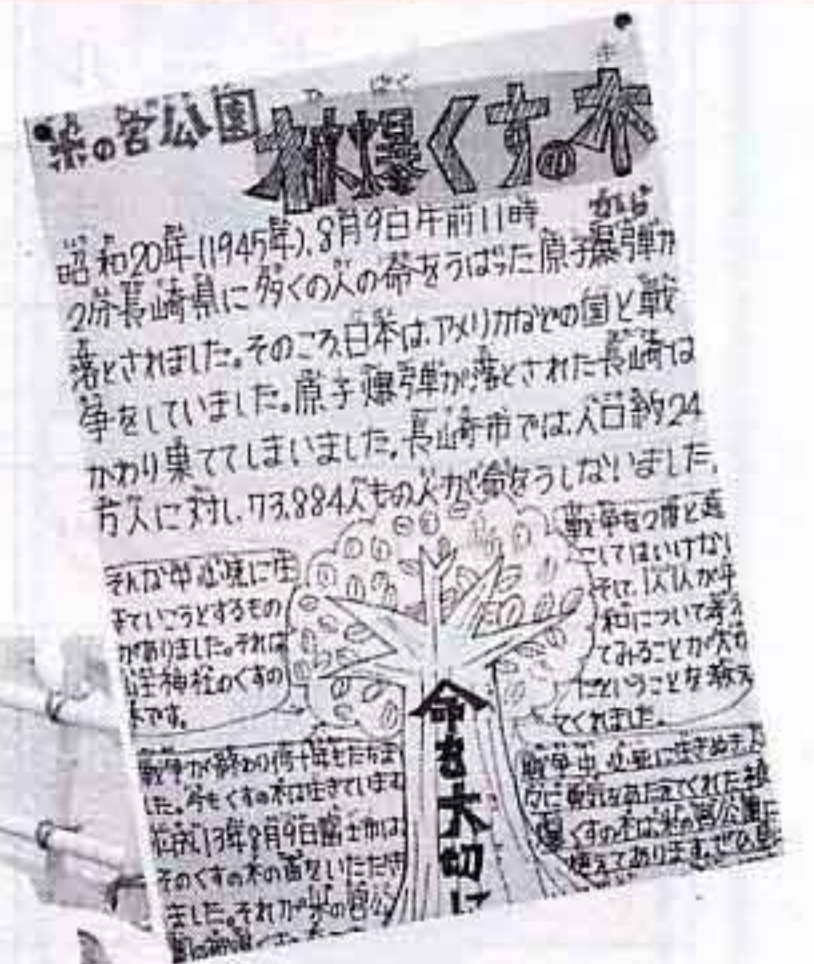 米の宮公園 被爆くすの木
昭和20年(1945年)、8月9日午前11時
2分長崎県に多くの人の命をうばった原子爆弾が
落とされました。そのころ、日本は、アメリカなどの国と戦
争をしていました。原子爆弾が落とされた長崎は
かわり果ててしまいました。長崎市では、人口約24
万人に対し、73,884人もの人が命をうしないました。
そんな中必死に生
きていこうとするもの
がありました。それは
山王神社のくすの
木です。
戦争を2度と起
こしてはいけない
そして、1人1人が平
和について考え
てみることが大切
だということを教え
てくれました。
命を大切に
戦争が終わり何十年もたちま
した。今もくすの木は生きています
平成13年8月9日富士市は
そのくすの木の苗をいただき
ました。それが米の宮公
戦争中、必死に生きぬき人
々に勇気をあたえてくれた被
爆くすの木は米の宮公園に
植えてあります。ぜひ見